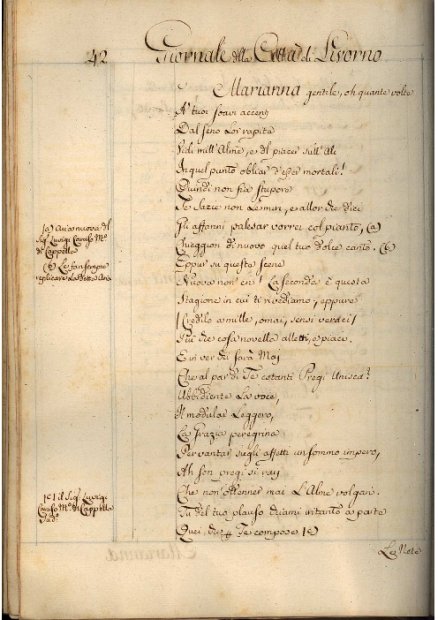 42 Giornale della Città di Livorno
Marianna gentile, oh quante volte
A' tuoi soavi accenti
Dal seno Lor rapite
Vidi mill'Alme, e del piacer sull'Ali
In quel punto obliar d'esser mortali!
Quindi non fia stupore
Te Sazie non
Gli affanni palesar vorrei col pianto, (a)
Chieggion di nuovo quel tuo dolce canto. (b)
Eppur su queste scene
Nuova non sei! La seconda è questa
Stagione in cui ti rivediamo, eppure
(Credilo a mille, omai, sensi veraci)
Più che cosa novella alletti, e piaci.
E in ver chi sarà Mai
Che al par di Te cotanti Pregi Unisca?
Ubbidiente La voce,
Il modular Leggero,
La Grazia peregrina
Per vantar sugli affetti un sommo impero,
Ah son pregi sì rari
Che non ottenner mai L'Alme volgari.
Tu del tuo plauso chiami intanto a parte
Quei, che Te compose (c)
(a) Aria nuova del
Sigr Luigi Caruso Mro
di Cappella
(b) Le fan sempre
replicare La detta Aria
(c) il Sigr Luigi
Caruso Mro di Cappella
Le Note
Marianna